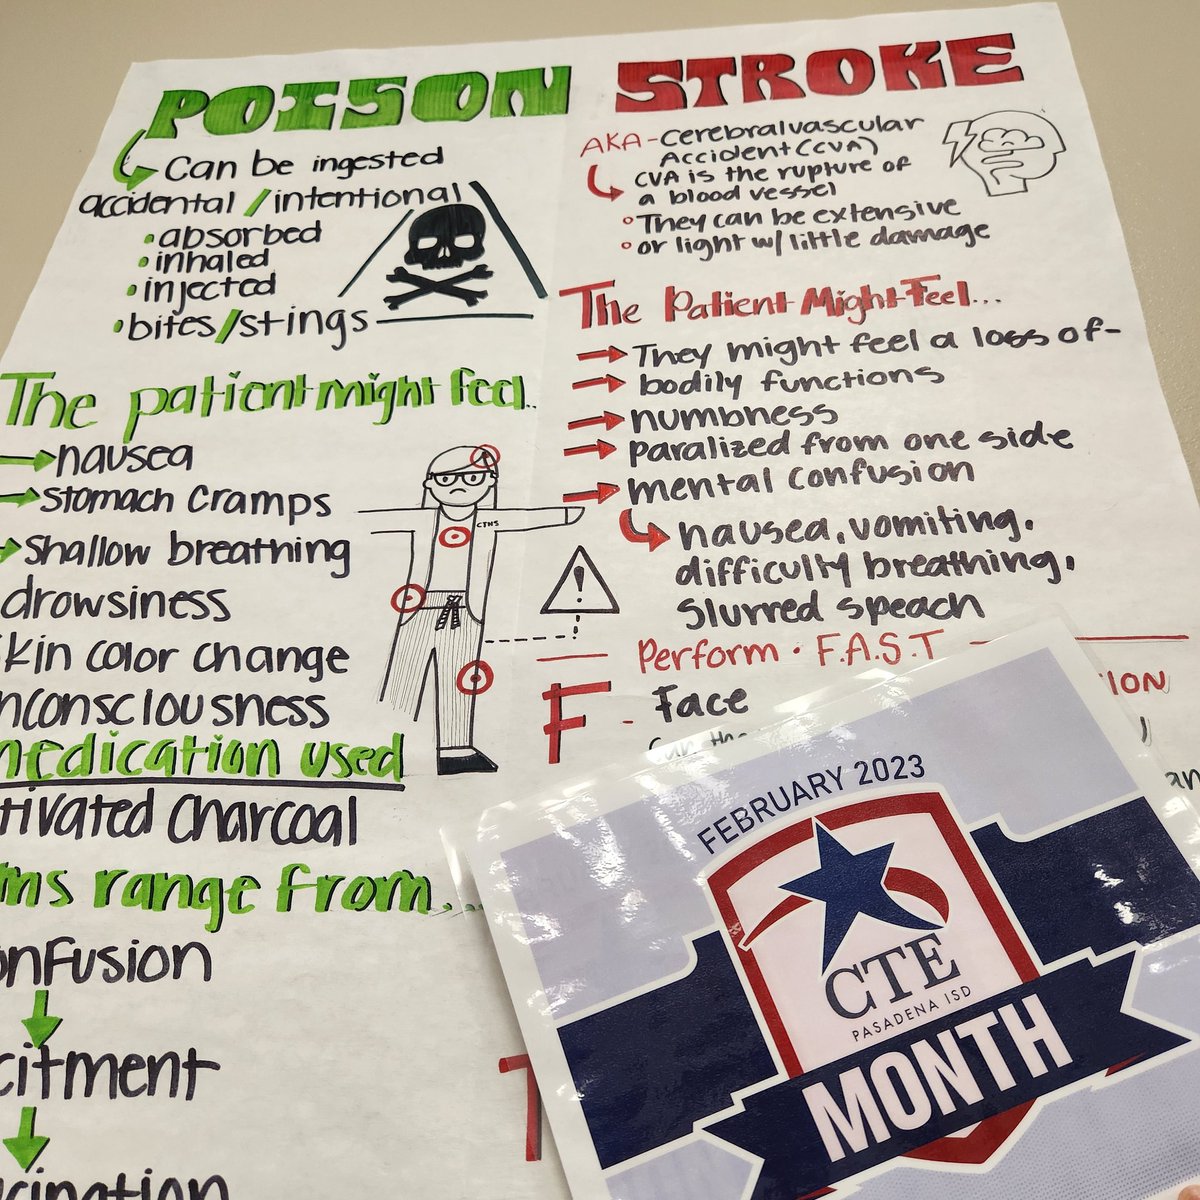 POISON
Can be ingested
accidental/intentional
•absorbed
•inhaled
•injected
•bites/stings
The patient might feel..
nausea
stomach cramps
shallow breathing
drowsiness
skin color change
nconsciousness
medication used
tivated charcoal
ms range from...
onfusion
citment
cination
CTHS
!
STROKE
AKA-cerebralvascular
Accident (CVA)
CVA is the rupture of
a blood vessel
°They can be extensive
°or light w/ little damage
The Patient Might Feel...
They might feel a loss of-
bodily functions
numbness
paralized from one side
mental confusion
nausea, vomiting.
difficulty breathing.
slurred speach
Perform • F.A.S.T
F - Face
can the
ION
an
T
FEBRUARY 2023
CTE
PASADENA ISD
MONTH